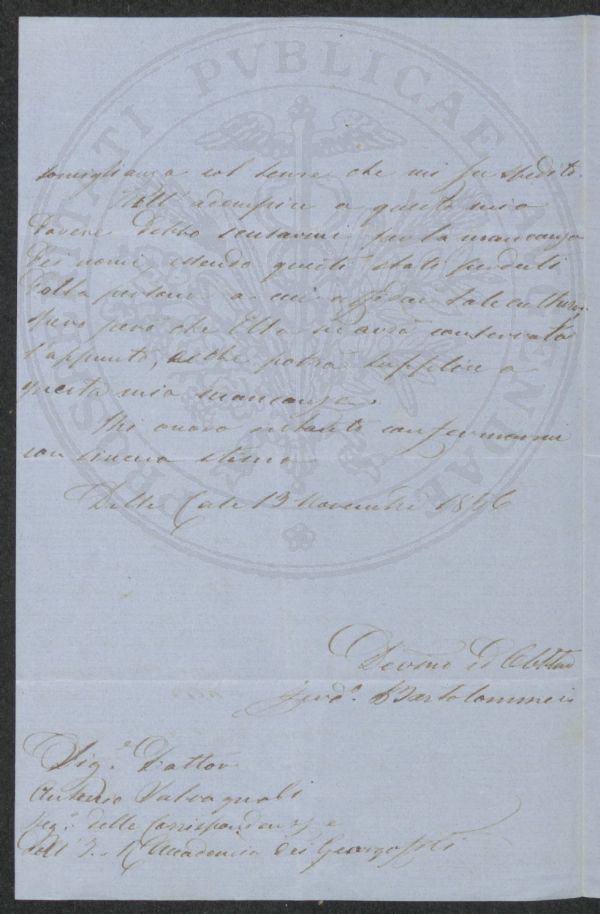 PROSPERITATI PVBLICAE AVGENDAE
somiglianza col seme che mi fu spedito.
Nell' adempire a questo mio
dovere debbo scusarmi per la mancanza
dei nomi, essendo questi stati perduti
dalla persona a cui affidai tale cultura,
spero però che Ella ne avrà conservato
l'appunto, e che potrà supplire a
questa mia mancanza.
Mi onoro intanto confermarmi
con sincera stima
Dalle Case 13 Novembre 1846
Devmo ed Obbmo
Serv.e Bartolommei
Sig.e Dottor
Antonio Salvagnoli
Seg.o delle Corrispondenze
dell' I. e R. Accademia dei Georgofili